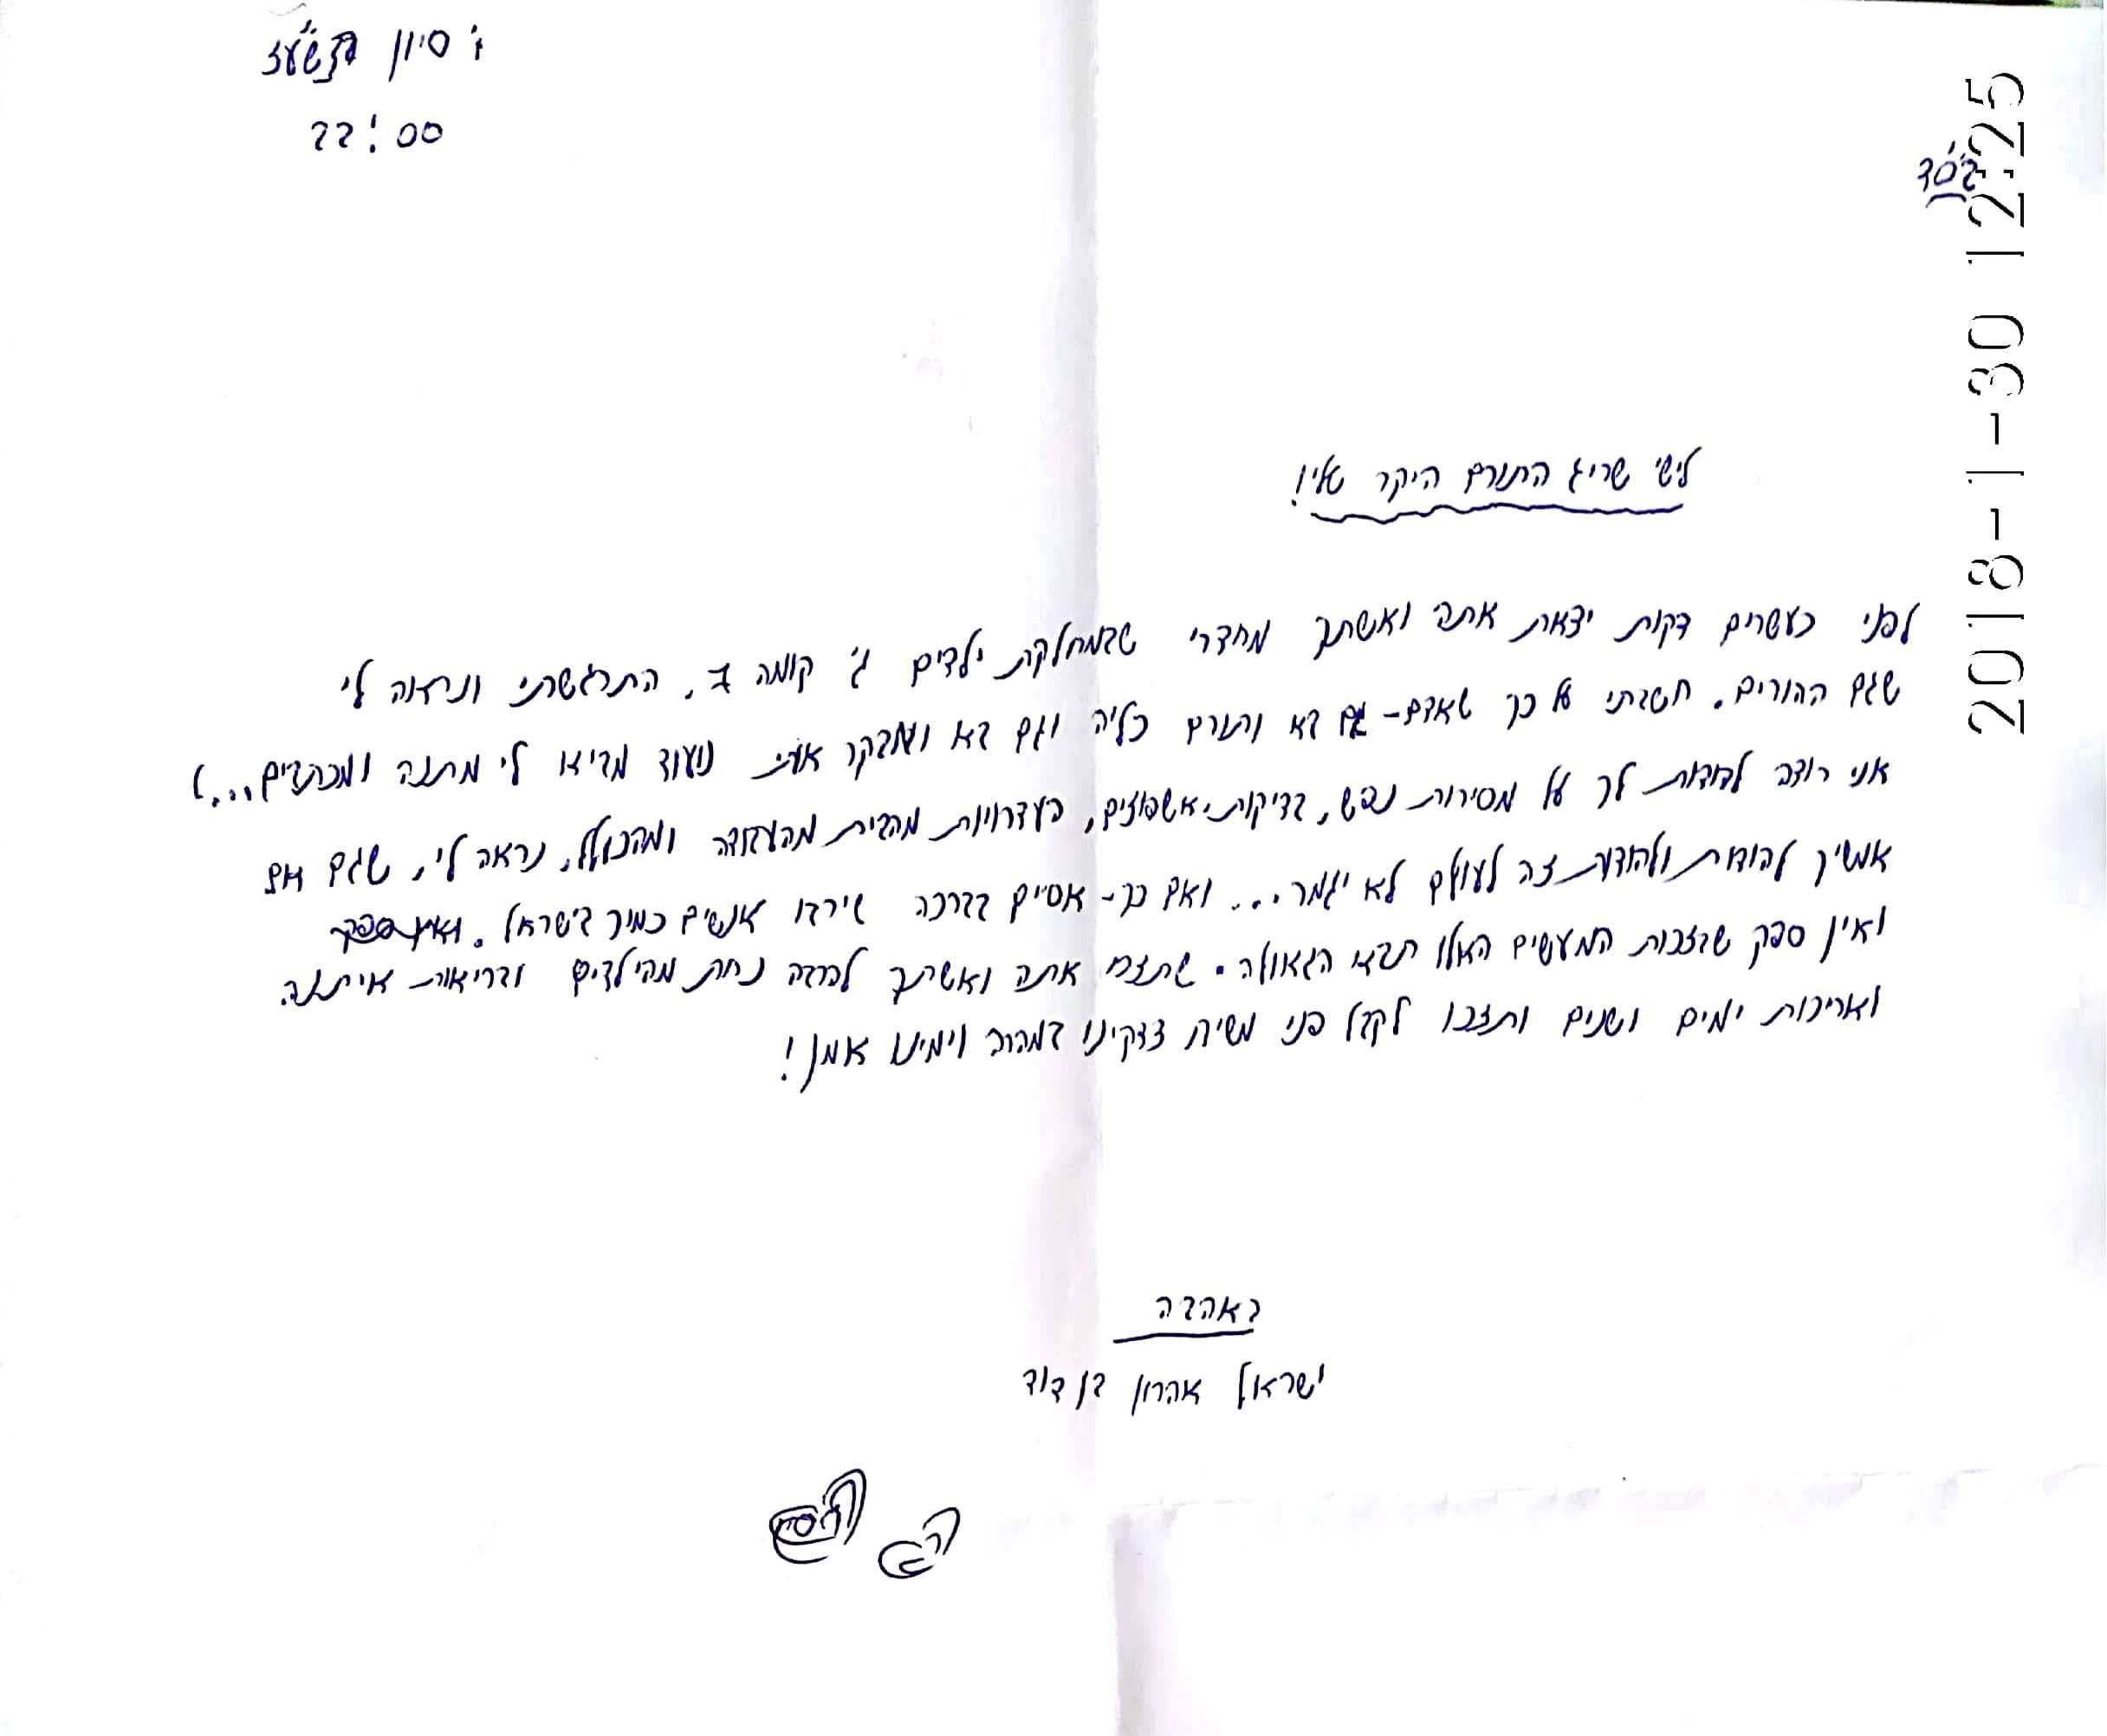 ז' סיון ה'תשע"ז
22:00
בס"ד
2018-1-30 12:25
לישי שריג התורם היקר שלי!
לפני כעשרים דקות יצאת אתה ואשתך מחדרי שבמחלקת ילדים ג' קומה 7. התרגשתי ונראה לי
שגם ההורים. חשבתי על כך שאדם - גם בא ותורם כליה וגם בא ומבקר אותי (ועוד מביא לי מתנה ומכתבים...)
אני רוצה להודות לך על מסירות נפש, בדיקות, אשפוזים, העדרויות מהבית מהעבודה ומהכולל. נראה לי, שגם אם
אמשיך להודות ולהודות זה לעולם לא יגמר... ואם כך - אסיים בברכה שירבו אנשים כמוך בישראל.
ואין ספק שבזכות המעשים האלו תבוא הגאולה. שתזכו אתה ואשתך להרבה נחת מהילדים ובריאות איתנה
ואריכות ימים ושנים ותזכו לקבל פני משיח צדקינו במהרה וימינו אמן!
באהבה
ישראל אהרון בן דוד